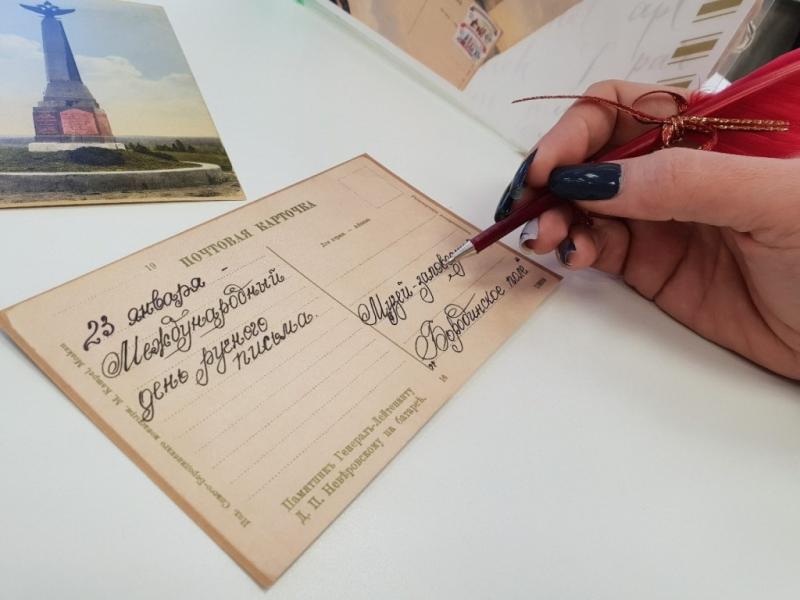 ПОЧТОВАЯ КАРТОЧКА
19
Для прим. – Adresse
23 января –
Международный
день ручного
письма.
Музей-запове
"Бородинское поле
Памятникъ Генералъ-Лейтенанту
Д. П. Невѣровскому на батареѣ.
16
Изд. Спасо-Бородинскаго монастыря. М. Кампель, Москва